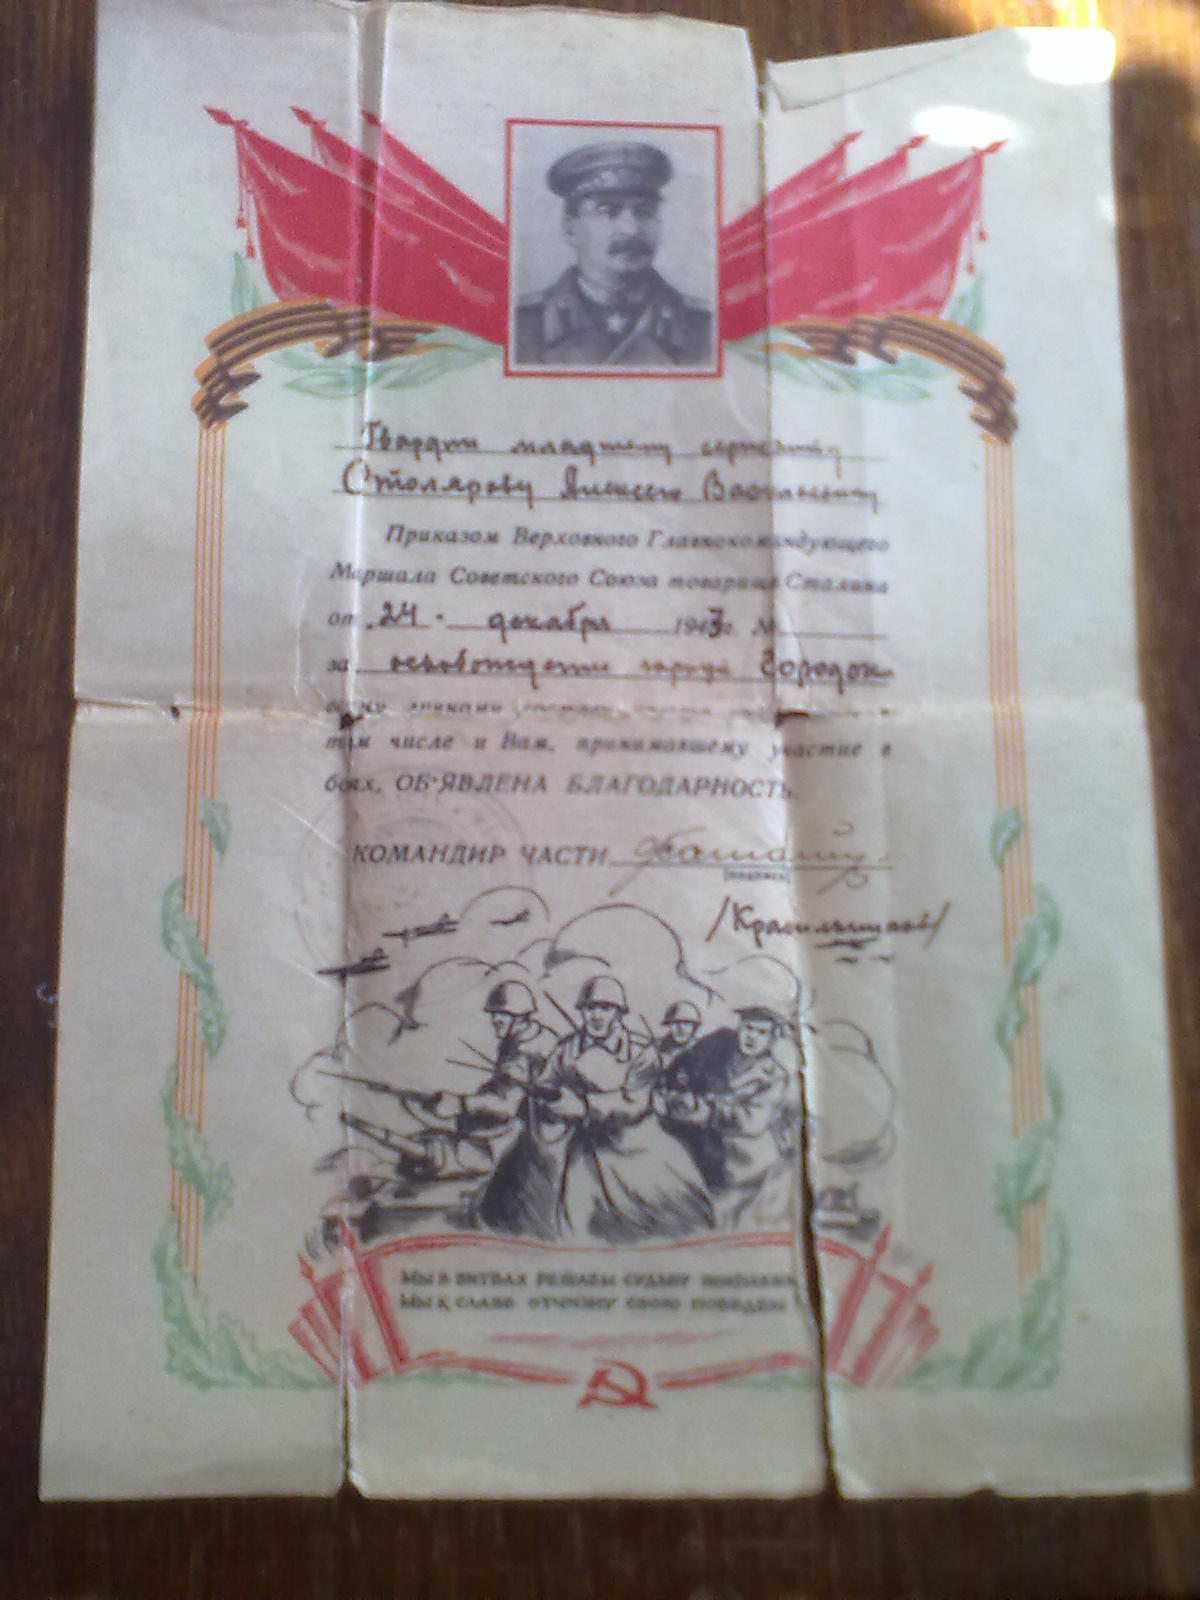 Гвардии младшему сержанту
Столярову Алексею Васильевичу
Приказом Верховного Главнокомандующего
Маршала Советского Союза товарища Сталина
от 24 декабря 1943г. №
за освобождение города Городок
всему личному составу
том числе и Вам, принимавшему участие в
боях, ОБ'ЯВЛЕНА БЛАГОДАРНОСТЬ.
КОМАНДИР ЧАСТИ
(подпись)
/Красильников/
МЫ В БИТВАХ РЕШАЕМ СУДЬБУ ПОКОЛЕНИЙ
МЫ К СЛАВЕ ОТЧИЗНУ СВОЮ ПОВЕДЕМ!